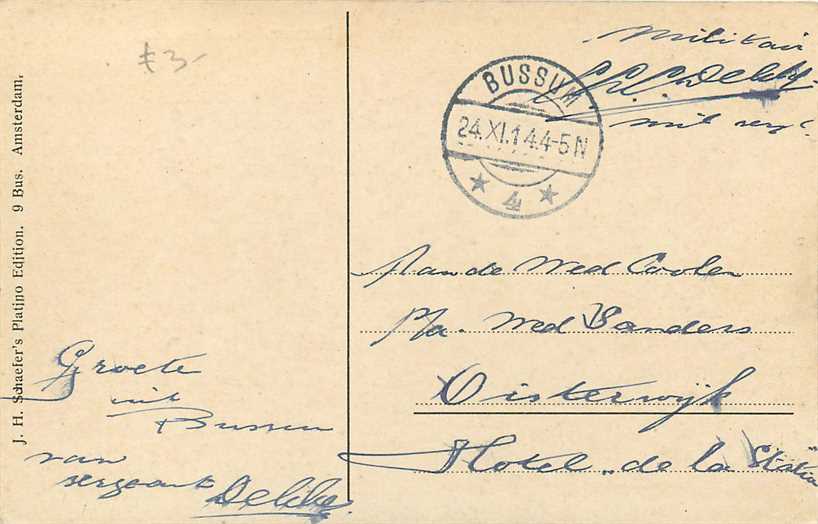 £3-
Militair
Dekker
mil serg.
BUSSUM
24.XI.14.4-5N
4
Aan de Wed Coolen
P/a. Wed Sanders
Oisterwijk
Hotel "de la Station
Groete
uit
Bussum
van
sergeant Dekker
J. H. Schaefer's Platino Edition. 9 Bus. Amsterdam.